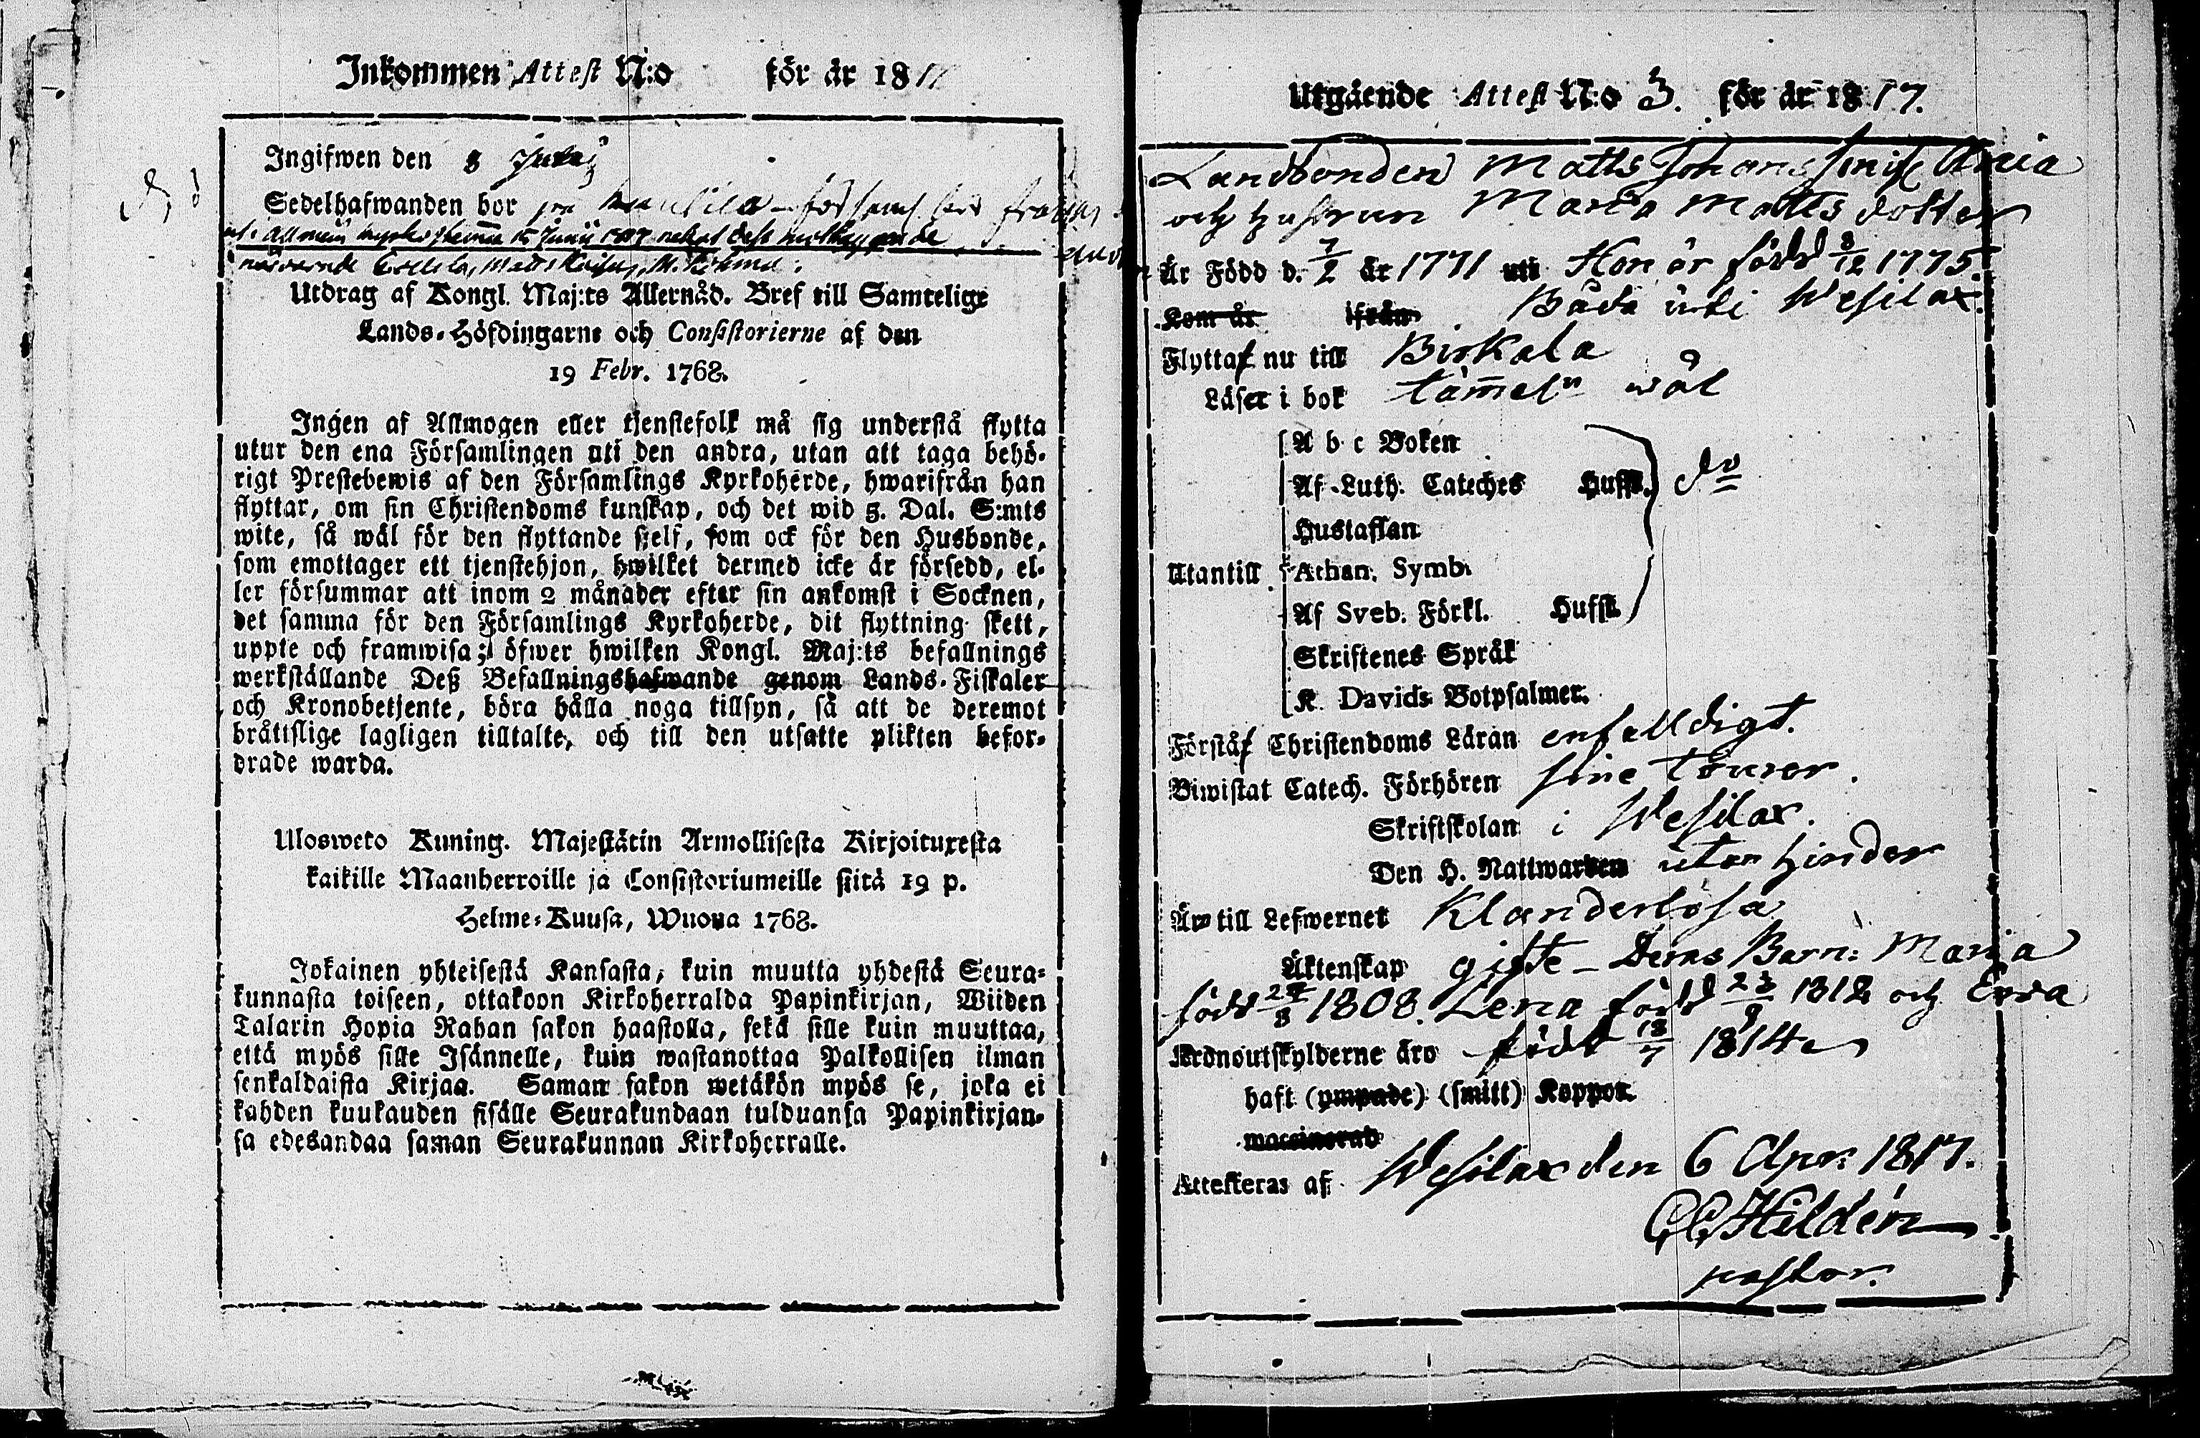 Inkommen Attest N:o för år 1817
Ingifwen den 8 Julij
Sedelhafwanden bor på
Utdrag af Kongl. Maj:ts Allernåd. Bref till Samtelige
Lands-Höfdingarne och Consistorierne af den
19 Febr. 1768.
Ingen af Allmogen eller tjenstefolk må sig understå flytta
utur den ena Församlingen uti den andra, utan att taga behö-
rigt Prestebewis af den Församlings Kyrkoherde, hwarifrån han
flyttar, om sin Christendoms kunskap, och det wid 5. Dal. S:mts
wite, så wäl för den flyttande sjelf, som ock för den Husbonde,
som emottager ett tjenstehjon, hwilket dermed icke är försedd, el-
ler försummar att inom 2 månader efter sin ankomst i Socknen,
det samma för den Församlings Kyrkoherde, dit flyttning skett,
uppte och framwisa; öfwer hwilken Kongl. Maj:ts befallnings
werkställande Deß Befallningshafwande genom Lands-Fiskaler
och Kronobetjente, böra hålla noga tillsyn, så att de deremot
bråttslige lagligen tilltalte, och till den utsatte plikten befor-
drade warda.
Ulosweto Kuning. Majestätin Armollisesta Kirjoituxesta
kaikille Maanherroille ja Consistoriumeille siitä 19 p.
Helme-Kuusa, Wuonna 1768.
Jokainen yhteisestä Kansasta, kuin muutta yhdestä Seura-
kunnasta toiseen, ottakoon Kirkoherralda Papinkirjan, Wiiden
Talarin Hopia Rahan sakon haastolla, sekä sille kuin muuttaa,
että myös sille Isännelle, kuin wastanottaa Palkollisen ilman
senkaldaista Kirjaa. Saman sakon wetäkön myös se, joka ei
kahden kuukauden sisälle Seurakundaan tulduansa Papinkirjan-
sa edesandaa saman Seurakunnan Kirkoherralle.
Utgående Attest N:o 3. för år 1817.
Landbonden Matts Johansson
och hustrun Maria Matts dotter
Är Född d. 7/2 år 1771 uti Hon är född 8/12 1775.
Kom år ifrån Båda uti Wesilax.
Flyttaf nu till Birkala
Läser i bok täm̅eln wäl
A b c Boken
Af Luth. Cateches Hufst. do
Hustaflan
Utantill Athan. Symb.
Af Sveb. Förkl. Hufst.
Skriftenes Språk
K. Davids Botpsalmer.
Förståf Christendoms Läran enfalldigt.
Biwistat Catech. Förhören sine tourer.
Skriftskolan i Wesilax.
Den H. Nattwarden utan hinder
Äro till Lefwernet Klanderlösa
Äktenskap gifte – Deras Barn: Maria
född 24/8 1808. Lena född 23/9 1812 och Ewa
Kronoutskylderne äro född 18/7 1814
haft (ympade) (smitt) Koppor.
waccinerad
Attesteras af Wesilax den 6 Apr. 1817.
CC Hildén
pastor.